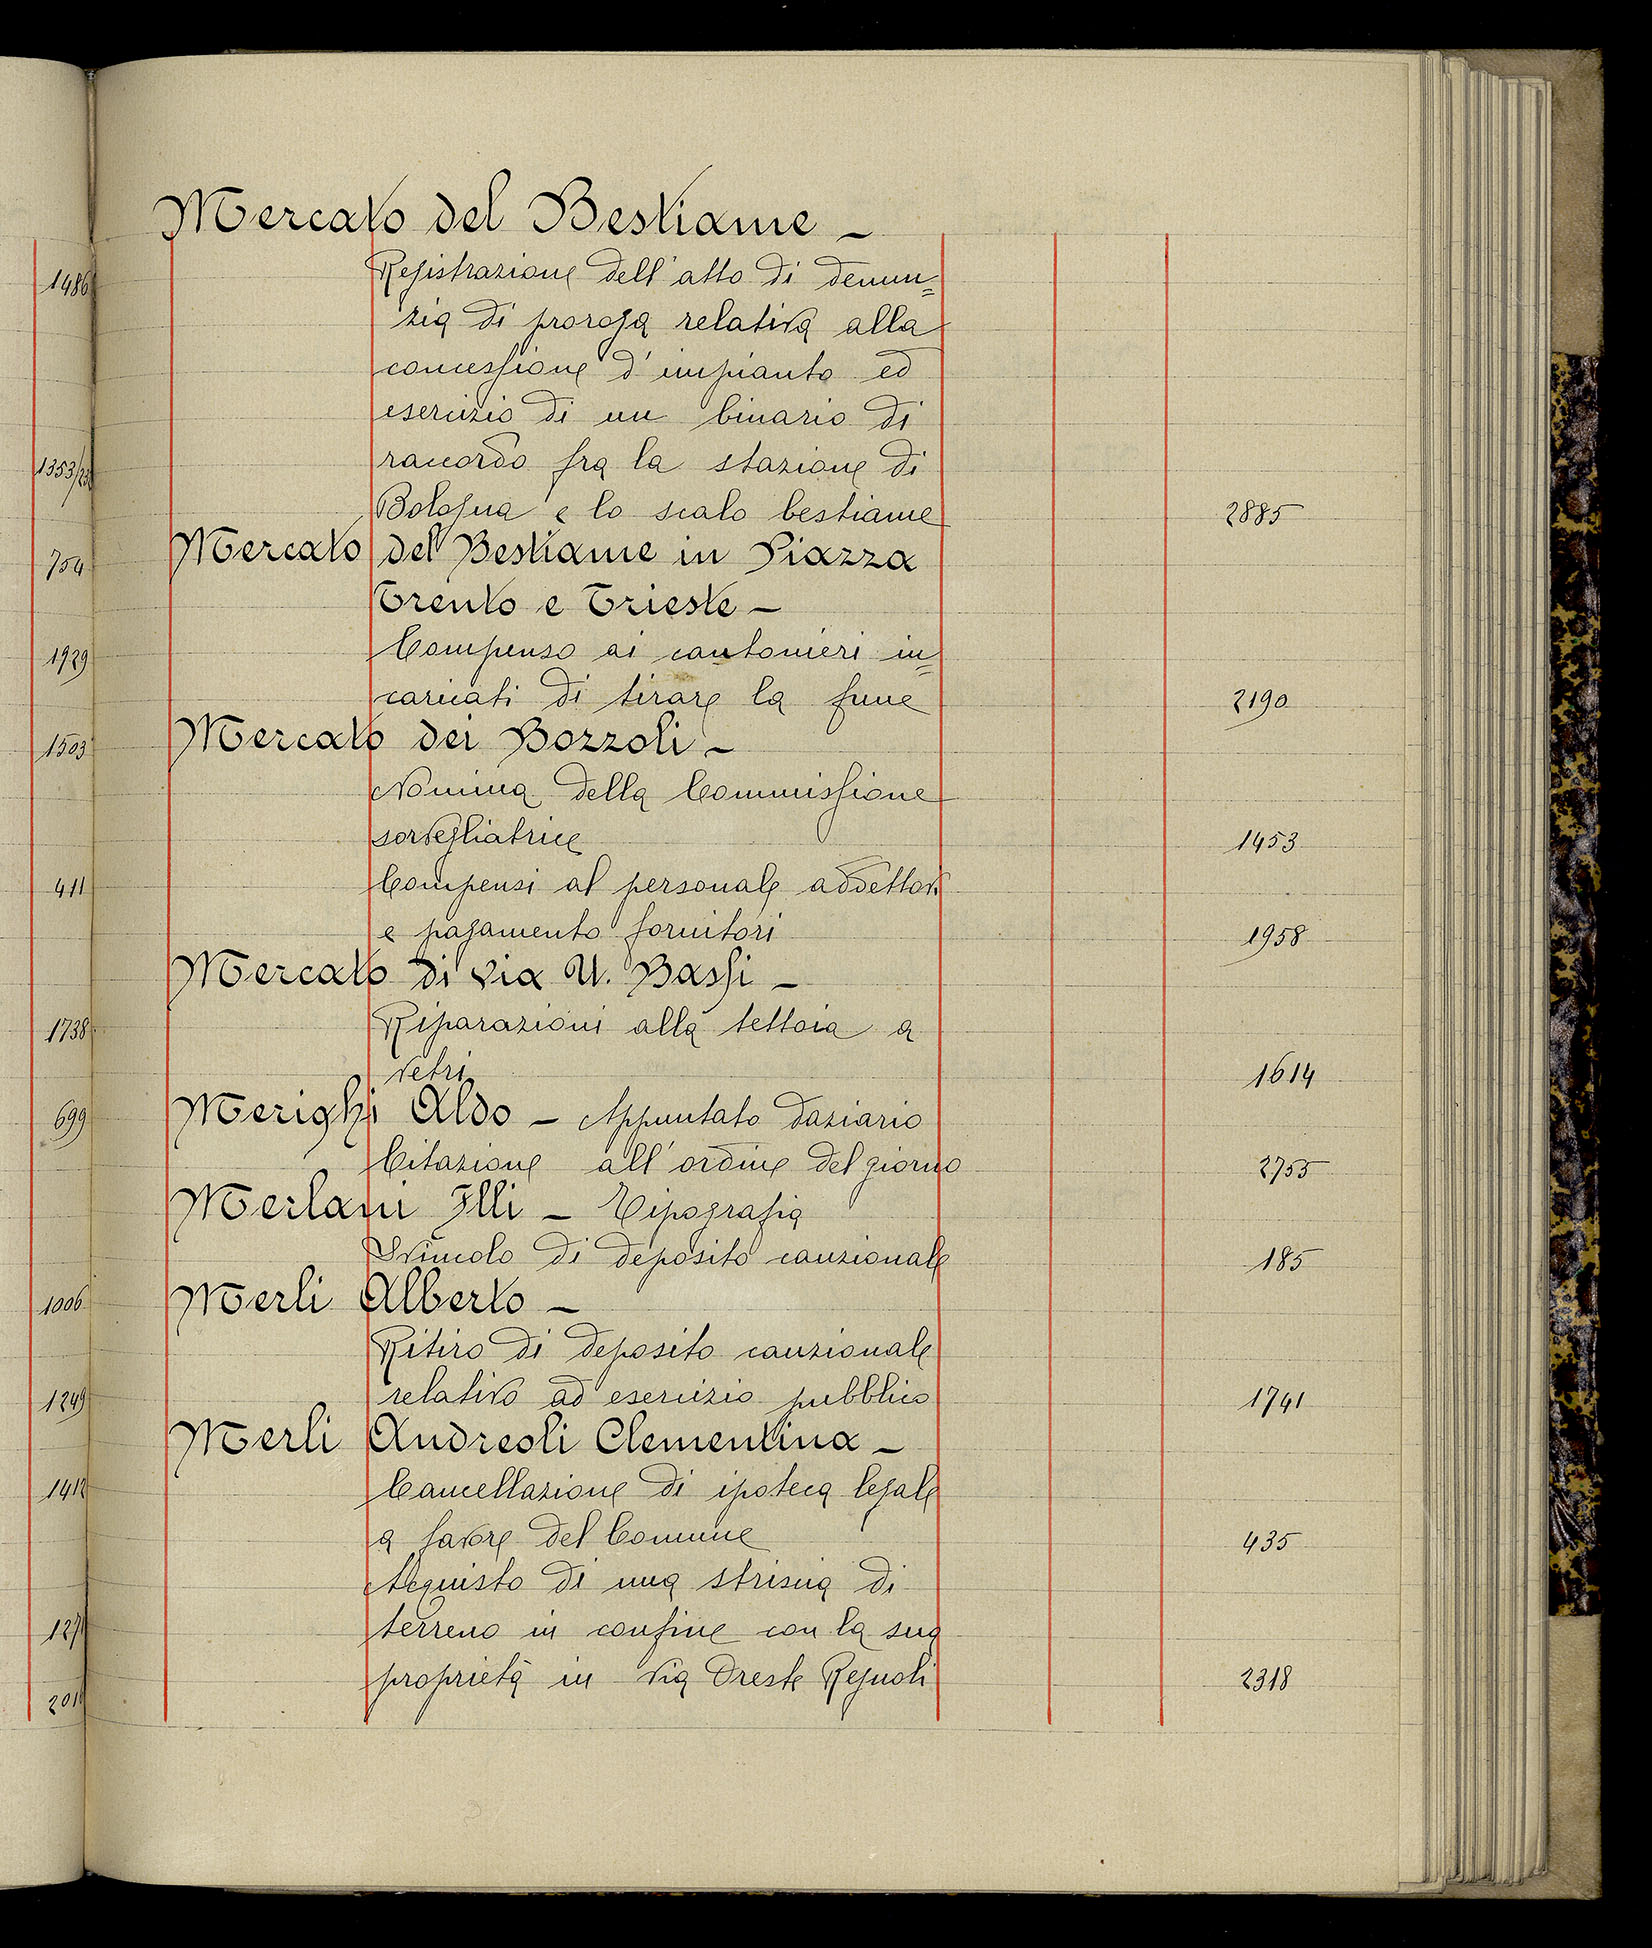 1486
1353/23
754
1929
1503
411
1738
699
1006
1249
1412
1271
Mercato del Bestiame –
Registrazione dell'atto di denun=
zia di proroga relativa alla
concessione d'impianto ed
esercizio di un binario di
raccordo fra la stazione di
Bologna e lo scalo bestiame 2885
Mercato del Bestiame in Piazza
Trento e Trieste –
Compenso ai cantonieri in=
caricati di tirare la fune 2190
Mercato dei Bozzoli –
Nomina della Commissione
sorvegliatrice 1453
Compensi al personale addettovi
e pagamento fornitori 1958
Mercato di via U. Bassi –
Riparazioni alla tettoia a
vetri 1614
Merighi Aldo – Appuntato daziario
Citazione all'ordine del giorno 2755
Merlani F.lli – Tipografia
Svincolo di deposito cauzionale 185
Merli Alberto –
Ritiro di deposito cauzionale
relativo ad esercizio pubblico 1741
Merli Andreoli Clementina –
Cancellazione di ipoteca legale
a favore del Comune 435
Acquisto di una striscia di
terreno in confine con la sua
proprietà in via Oreste Regnoli 2318